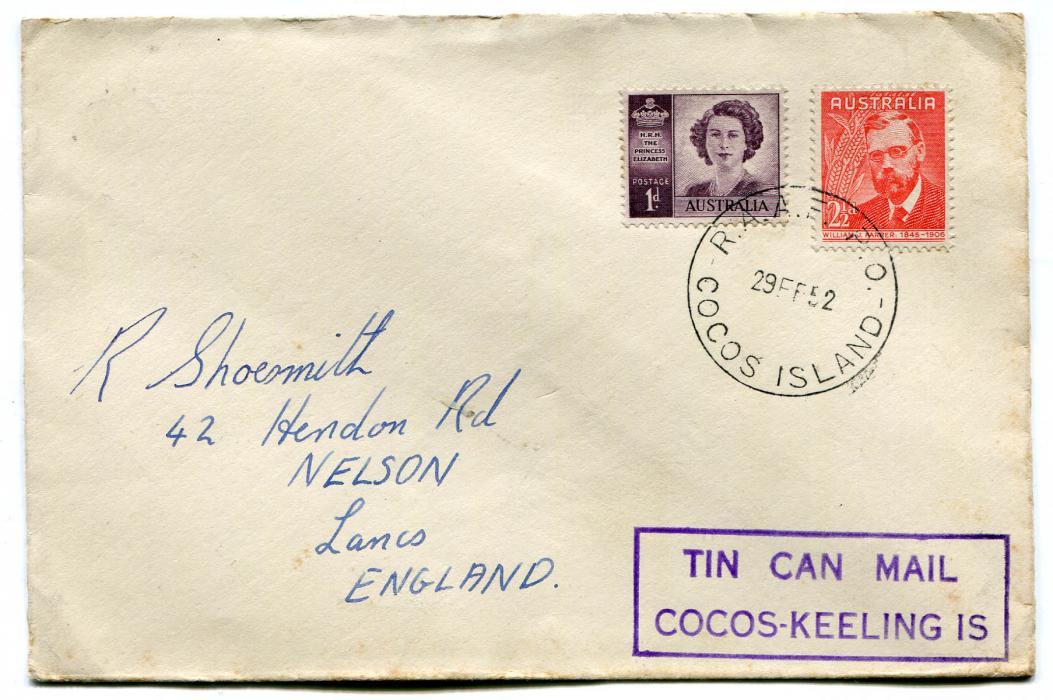 H.R.H.
THE
PRINCESS
ELIZABETH
POSTAGE
1d.
AUSTRALIA
AUSTRALIA
2½d
WILLIAM J. FARRER. 1845-1906
R.A.A.F. P.O.
29 FE 52
-COCOS ISLAND-
R Shoesmith
42 Hendon Rd
NELSON
Lancs
ENGLAND.
TIN CAN MAIL
COCOS-KEELING IS